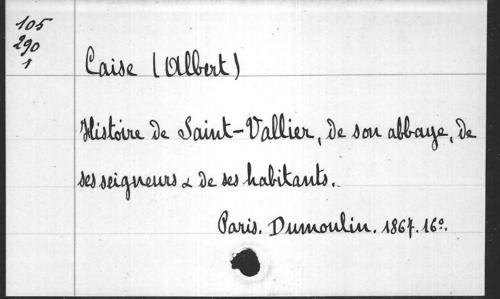 105
290
1
Caise (Albert)
Histoire de Saint-Vallier, de son abbaye, de
ses seigneurs & de ses habitants.
Paris. Dumoulin. 1867. 16º.